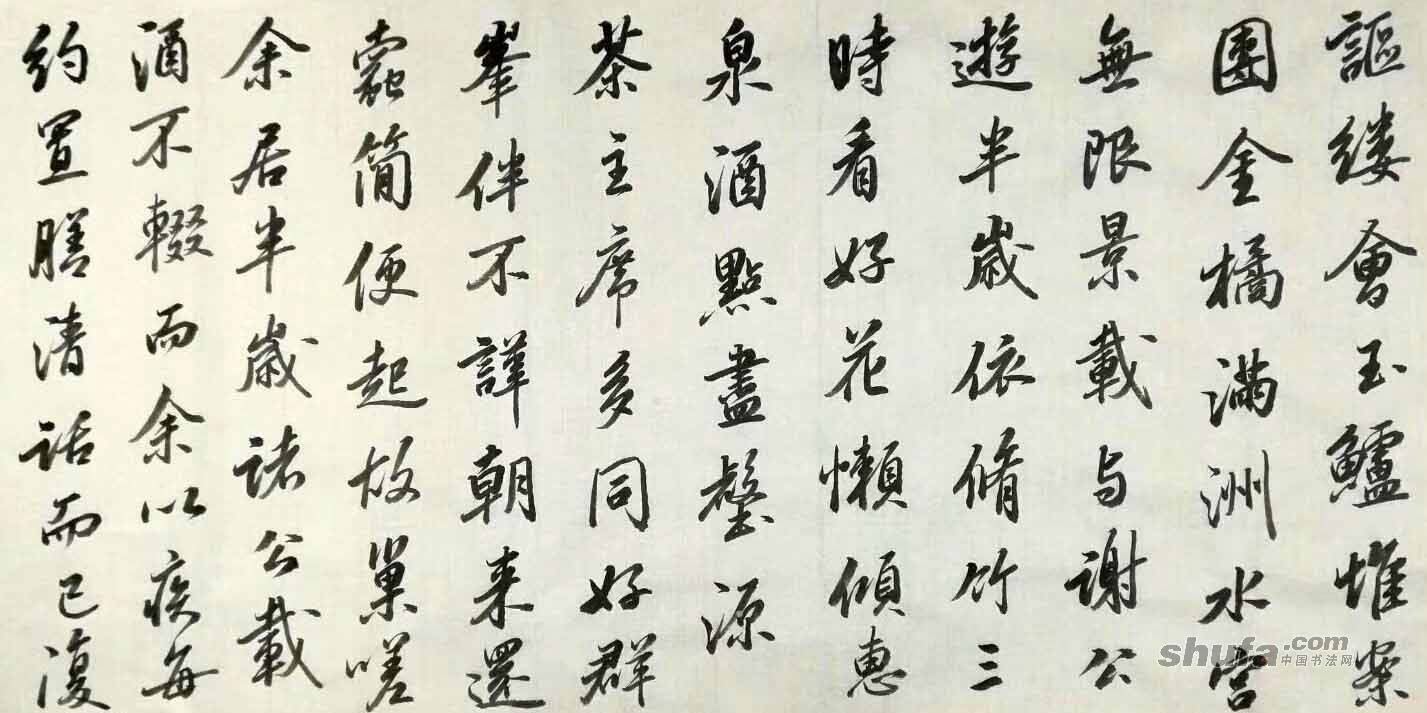 謳縷會玉鱸堆案
團金橘滿洲水宮
無限景載与謝公
遊半歲依脩竹三
時看好花懶傾惠
泉酒點盡壑源
茶主席多同好群
峯伴不譁朝来還
蠹簡便起故巢嗟
余居半歲諸公載
酒不輟而余以疾每
約置膳清話而已復
shufa.com
中国书法网